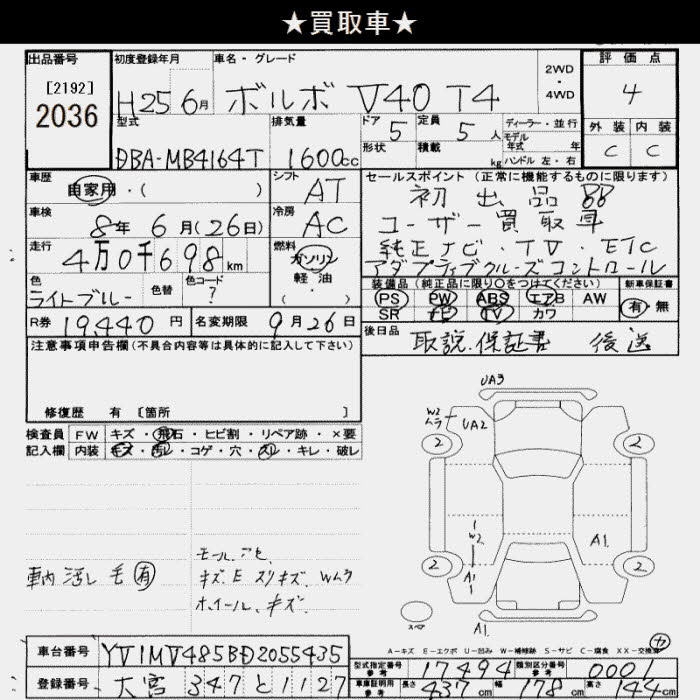 ★買取車★
出品番号 初度登録年月 車名・グレード 2WD・4WD 評価点
[2192]
2036 H25 6月 ボルボ V40 T4 4
外装 内装
C C
型式 排気量 ドア 定員 ディーラー・並行
DBA-MB4164T 1600cc 5 5人 モデル年式 年
形状 積載 kg ハンドル 左・右
車歴 シフト セールスポイント (正常に機能するものに限ります)
自家用・( ) AT 初出品
車検 冷房 ユーザー買取車
8年 6月(26日) AC 純正ナビ・TV・ETC
走行 燃料 アダプティブクルーズコントロール
4万0千698km ガソリン
軽油
・( )
色 色替 色コード
ライトブルー ?
装備品 (純正品に限り○をつけてください) 新車保証書
PS PW ABS エアB AW 有・無
SR ナビ TV カワ
R券 19,440円 名変期限 9月26日
後日品 取説.保証書 後送
注意事項申告欄(不具合内容等は具体的に記入して下さい)
修復歴 有 [箇所 ]
検査員 FW キズ・飛石・ヒビ割・リペア跡・×要
記入欄 内装 キズ・汚レ・コゲ・穴・スレ・キレ・破レ
UA3
W2
ムラ
UA2
2 2
W2
A1
A1
2 2
スペア
A1
車内 汚し 毛 有
キズ.E スリキズ.Wムラ
ホイール.キズ
A-キズ E-エクボ U-凹み W-補修跡 S-サビ C-腐食 XX-交換済
カ
車台番号 YV1MV485BD2055435
型式指定番号 参考 17494 類別区分番号 参考 0001
登録番号 大宮 347と1127
車庫証明用 参考 長さ 437cm 幅 178cm 高さ 144cm